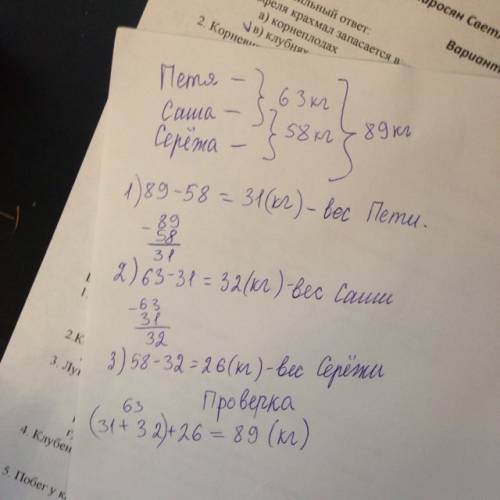 аросян Свет
ильный ответ:
преля крахмал запасается в
а) корнеплодах
2. Корневи
в) клубнях
Вариант
Петя – 63 кг
Саша – 58 кг 89 кг
Серёжа –
1) 89 - 58 = 31 (кг) - вес Пети.
- 89
58
31
2) 63 - 31 = 32 (кг) - вес Саши
- 63
31
32
3) 58 - 32 = 26 (кг) - вес Серёжи
Проверка
63
(31 + 32) + 26 = 89 (кг)
1.
2.К
3. Лу
4. Клубен
5. Побег у к